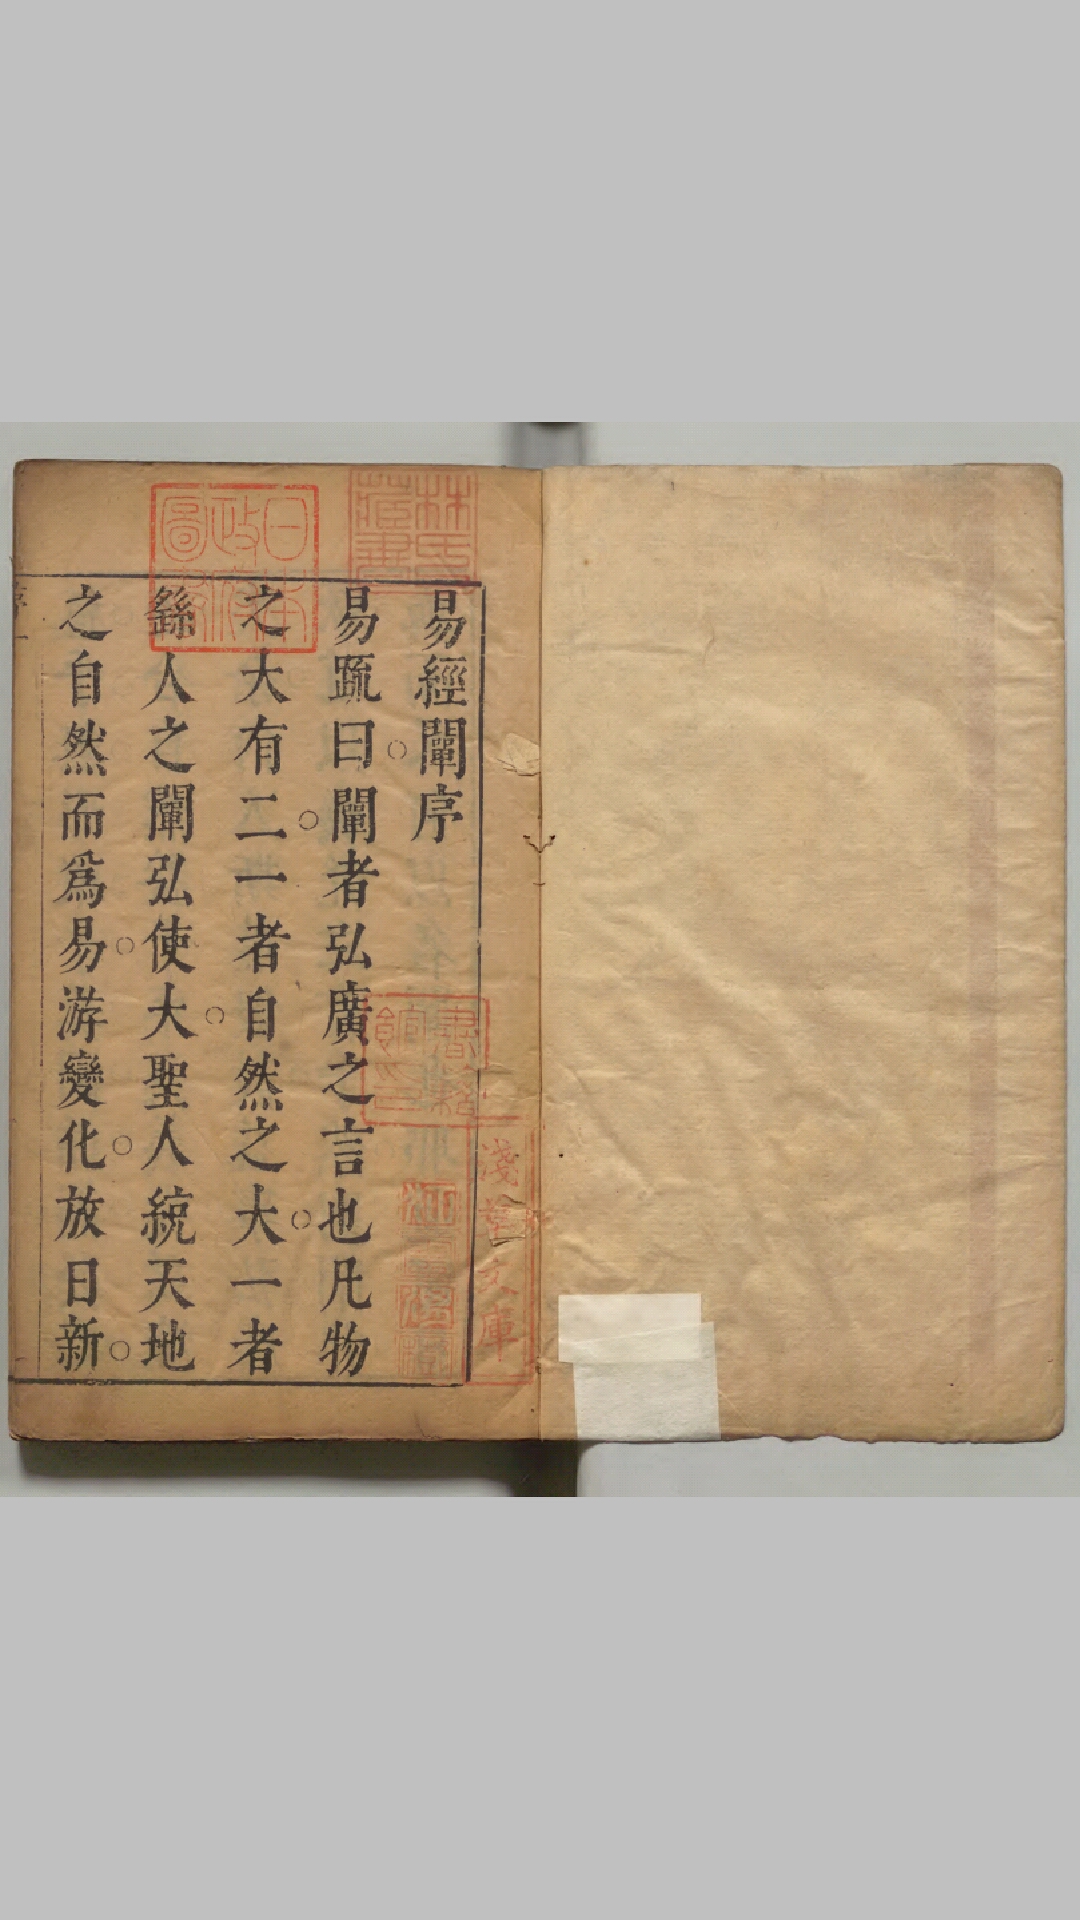 易經闡序
易䟽曰○闡者弘廣之言也凡物
之大有二○一者自然之大○一者
繇人之闡弘使大○聖人統天地
之自然而爲易○游變化○放日新○
日本政府圖書
林氏藏書
淺草文庫